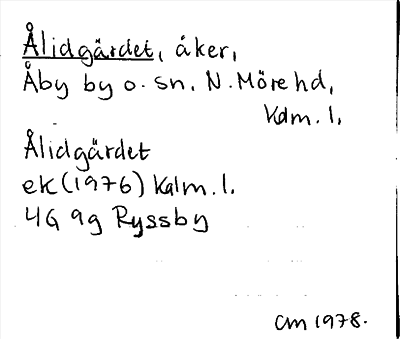 Ålidgärdet, åker,
Åby by o. sn, N. Möre hd,
Kdm. l.
Ålidgärdet
ek (1976) Kalm. l.
4G 9g Ryssby
CM 1978.